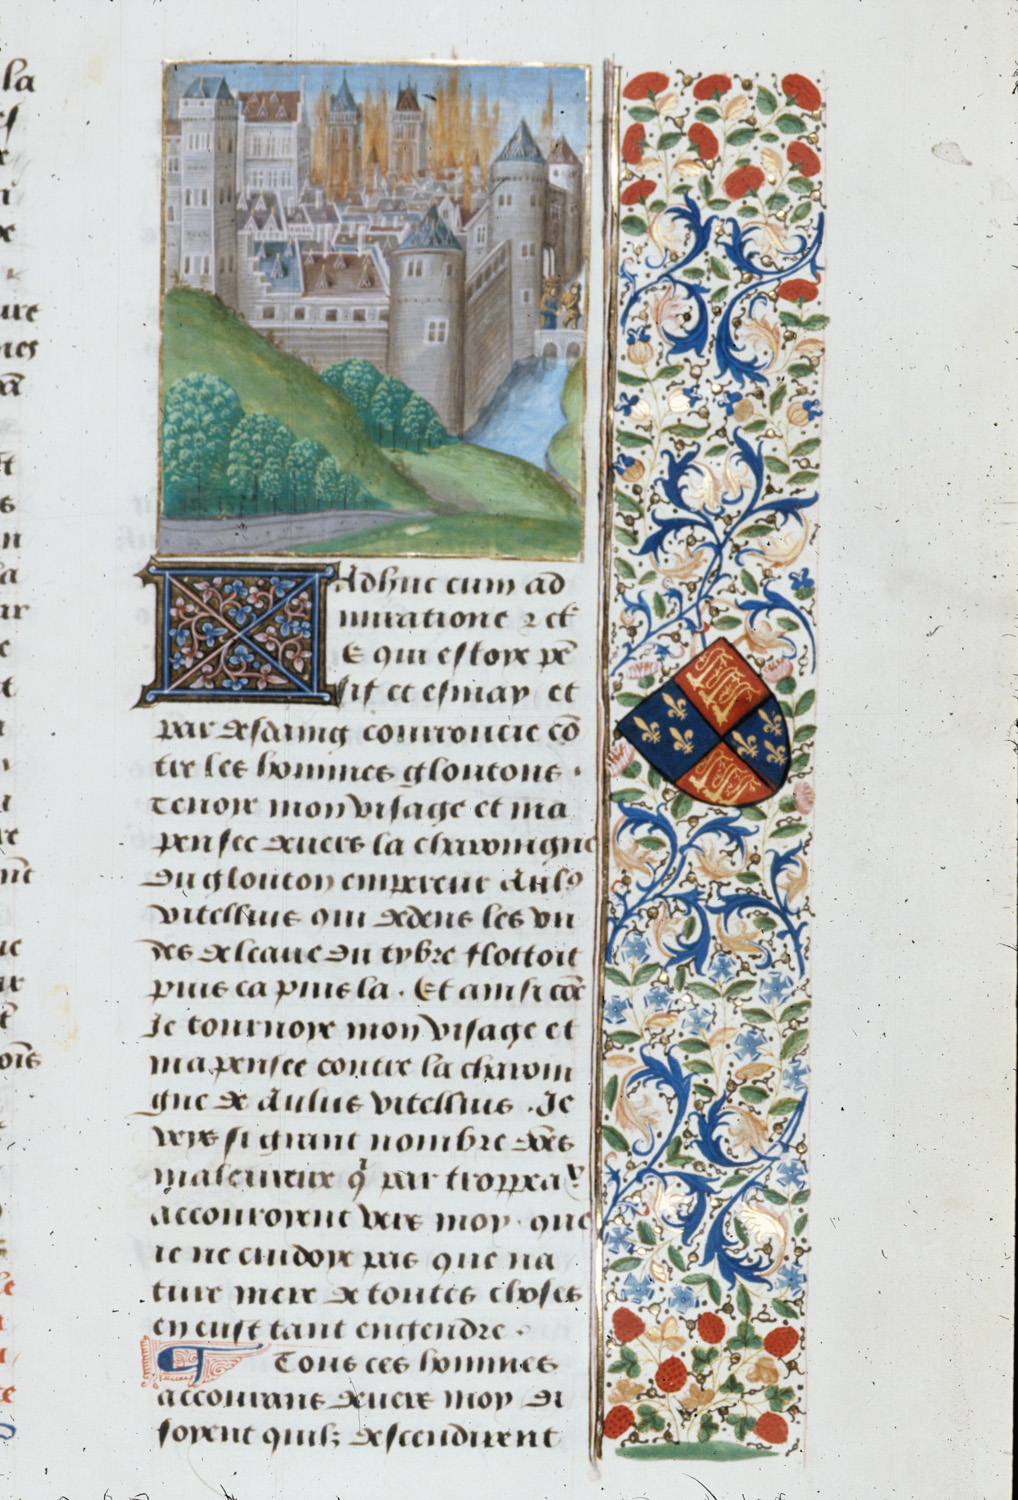 Adhuc cum ad
miratione et cet
E qui estoye pē
sif et esmay et
par desdaing courroucie cō
tre les hommes gloutons.
Tenoye mon visage et ma
pensee devers la charoingne
du glouton empereur Aul9
vitellius qui dedens les un
des de leaue du tybre flottoit
puis ca puis la. Et ainsi cōe
Je tournoye mon visage et
ma pensee contre la charoin
gne de Aulus vitellius. Je
veys si grant nombre des
maleureux q̄ par troppeaux
accouroyent vers moy. que
ie ne cuidoye pas que na
ture mere de toutes choses
en eust tant engendre.
Tous ces hommes
accourans devers moy di
soyent quilz descendirent